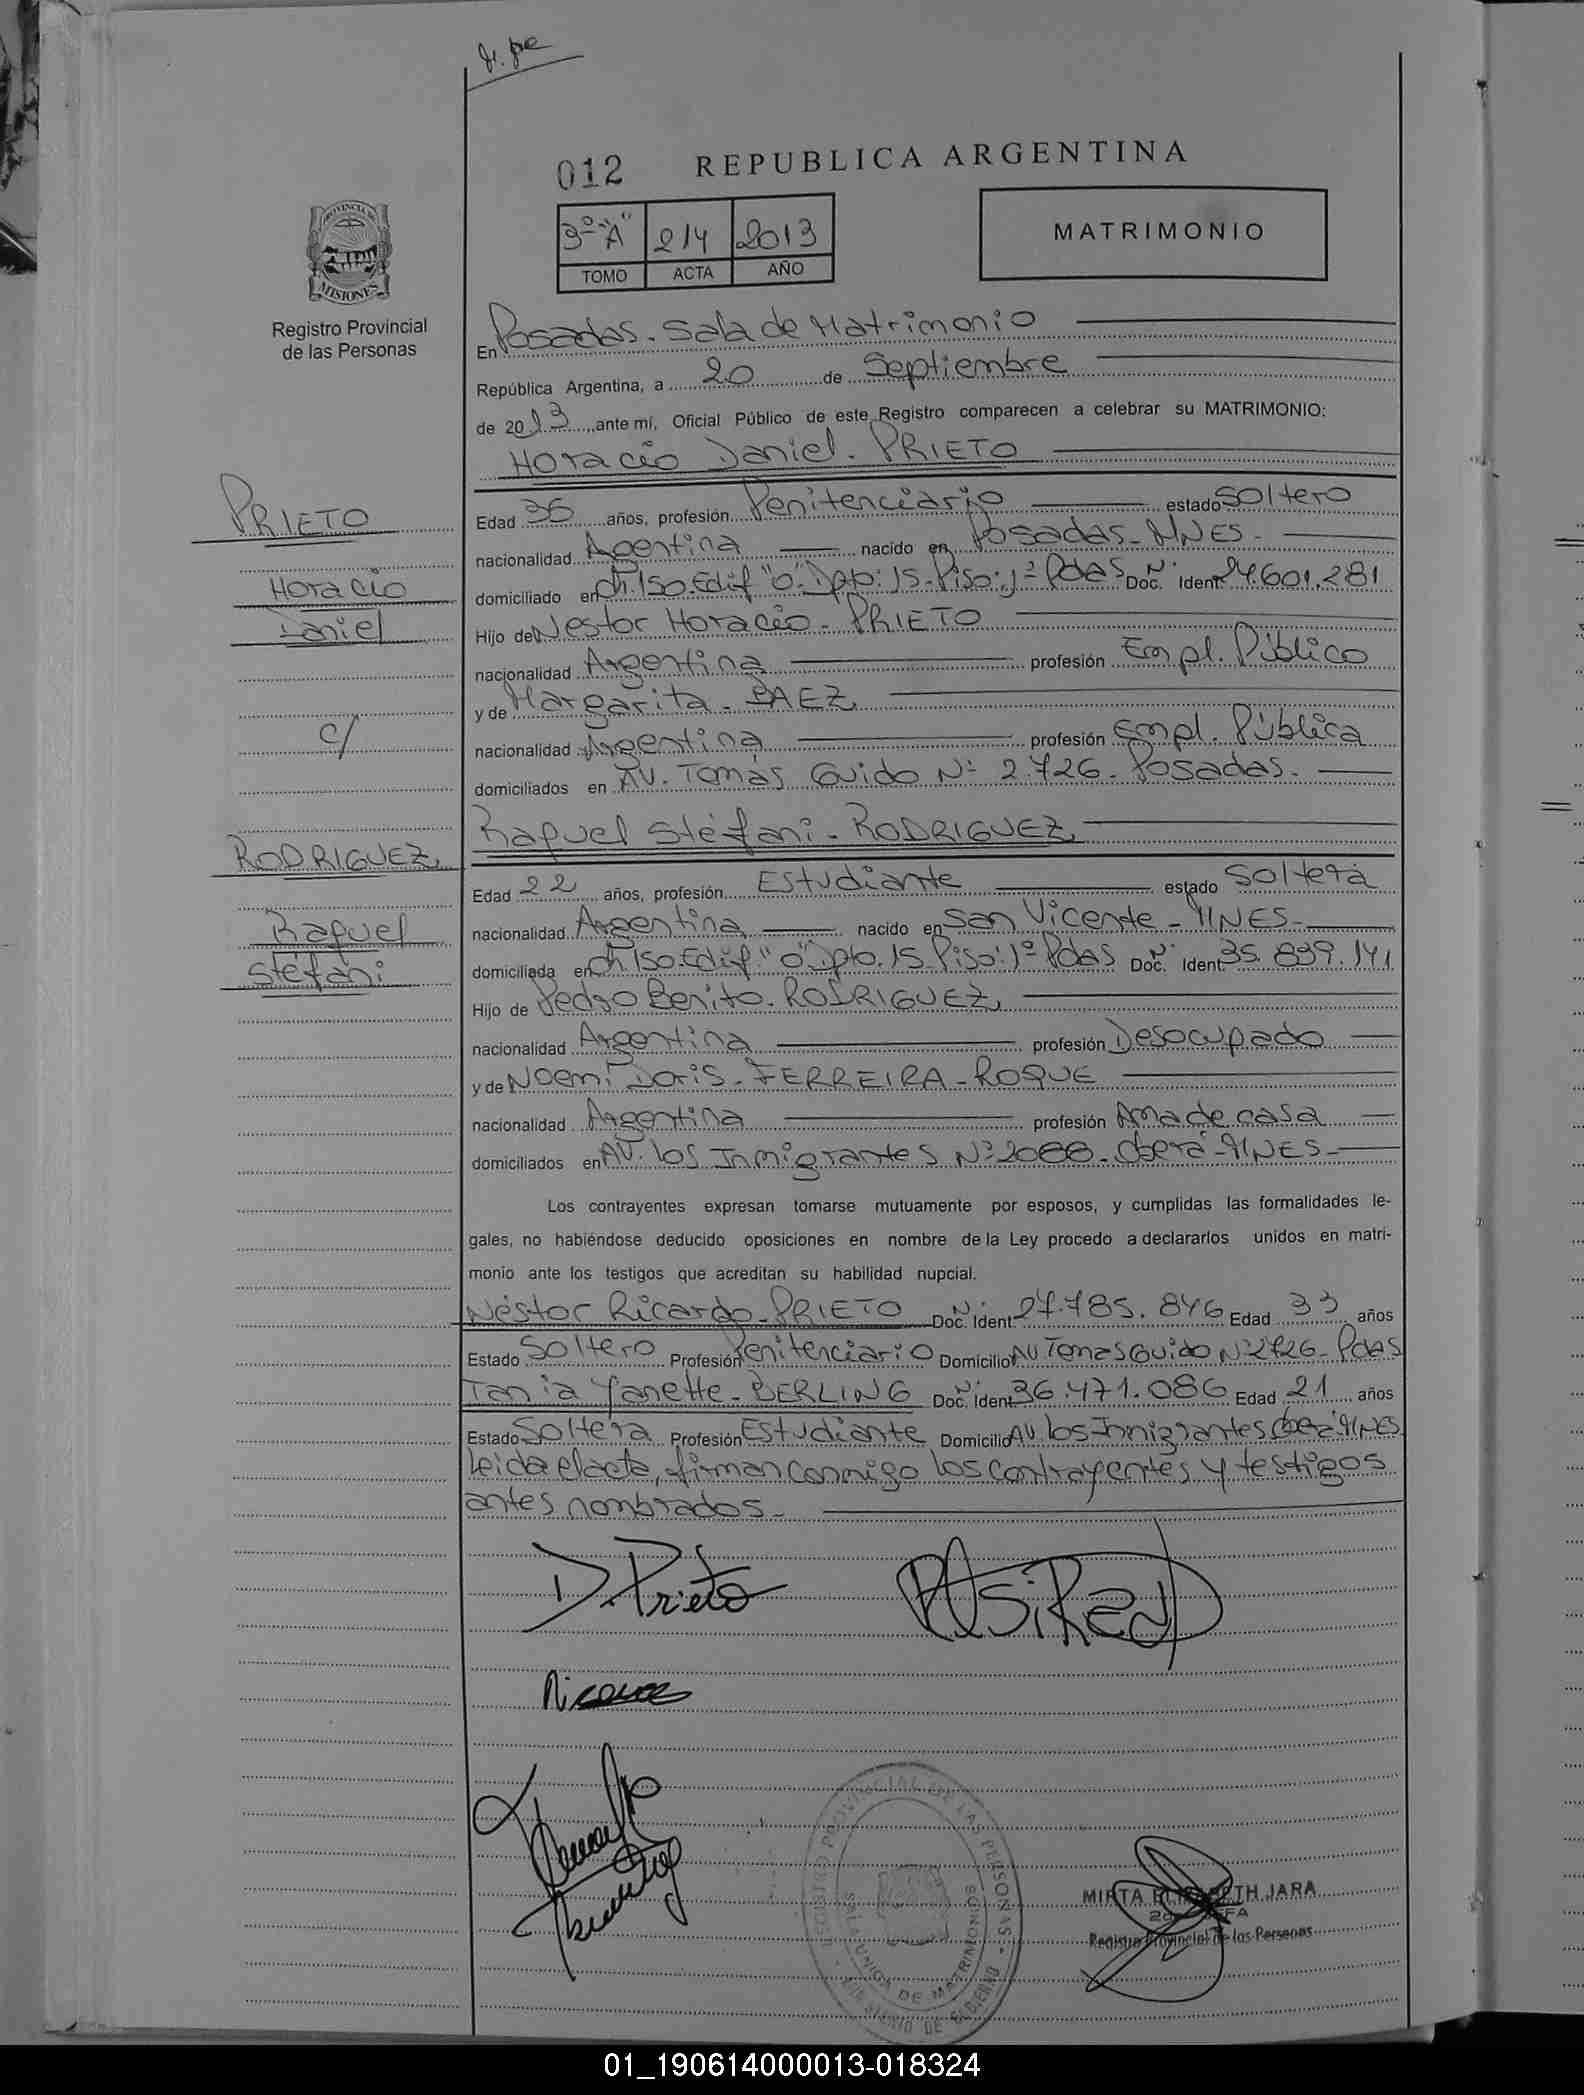 012 REPUBLICA ARGENTINA
3º "A" 214 2013
TOMO ACTA AÑO
MATRIMONIO
PROVINCIA DE
MISIONES
Registro Provincial
de las Personas
En Posadas. Sala de Matrimonio
República Argentina, a 20 de Septiembre
de 2013 ante mí, Oficial Público de este Registro comparecen a celebrar su MATRIMONIO:
Horacio Daniel. PRIETO
PRIETO
Horacio
Daniel
c/
RODRIGUEZ
Raquel
Stéfani
Edad 36 años, profesión Penitenciario estado Soltero
nacionalidad Argentina nacido en Posadas - MNES -
domiciliado en Ch. 150. Edif "O". Dpto: 15 - Piso: 1º Pdas Doc. Nº Ident. 24.601.281
Hijo de Nestor Horacio - PRIETO
nacionalidad Argentina profesión Empl. Público
y de Margarita - PAEZ
nacionalidad Argentina profesión Empl. Pública
domiciliados en AV. Tomás Guido Nº 2.726 - Posadas.
Raquel Stéfani - RODRIGUEZ
Edad 22 años, profesión Estudiante estado Soltera
nacionalidad Argentina nacido en San Vicente - MNES -
domiciliada en Ch 150. Edif. "O" Dpto. 15 Piso: 1º Pdas Doc. Nº Ident. 35.899.141
Hijo de Pedro Benito. RODRIGUEZ
nacionalidad Argentina profesión Desocupado
y de Noemí Doris - FERREIRA - ROQUE
nacionalidad Argentina profesión Ama de casa
domiciliados en AV. los Inmigrantes Nº 2066 - Oberá - MNES -
Los contrayentes expresan tomarse mutuamente por esposos, y cumplidas las formalidades le-
gales, no habiéndose deducido oposiciones en nombre de la Ley procedo a declararlos unidos en matri-
monio ante los testigos que acreditan su habilidad nupcial.
Néstor Ricardo - PRIETO Doc. Nº Ident. 27.785.846 Edad 33 años
Estado Soltero Profesión Penitenciario Domicilio AV Tomas Guido Nº 2726 - Pdas
Tania Yanette - BERLING Doc. Nº Ident. 36.471.086 Edad 21 años
Estado Soltera Profesión Estudiante Domicilio AV. los Inmigrantes Oberá - MNES
Leida el acta, firman conmigo los contrayentes y testigos
antes nombrados -
D. Prieto
REGISTRO PROVINCIAL DE LAS PERSONAS
SALA UNICA DE MATRIMONIOS
MINISTERIO DE GOBIERNO
MIRTA ELIZABETH JARA
Registro Provincial de las Personas
01_190614000013-018324